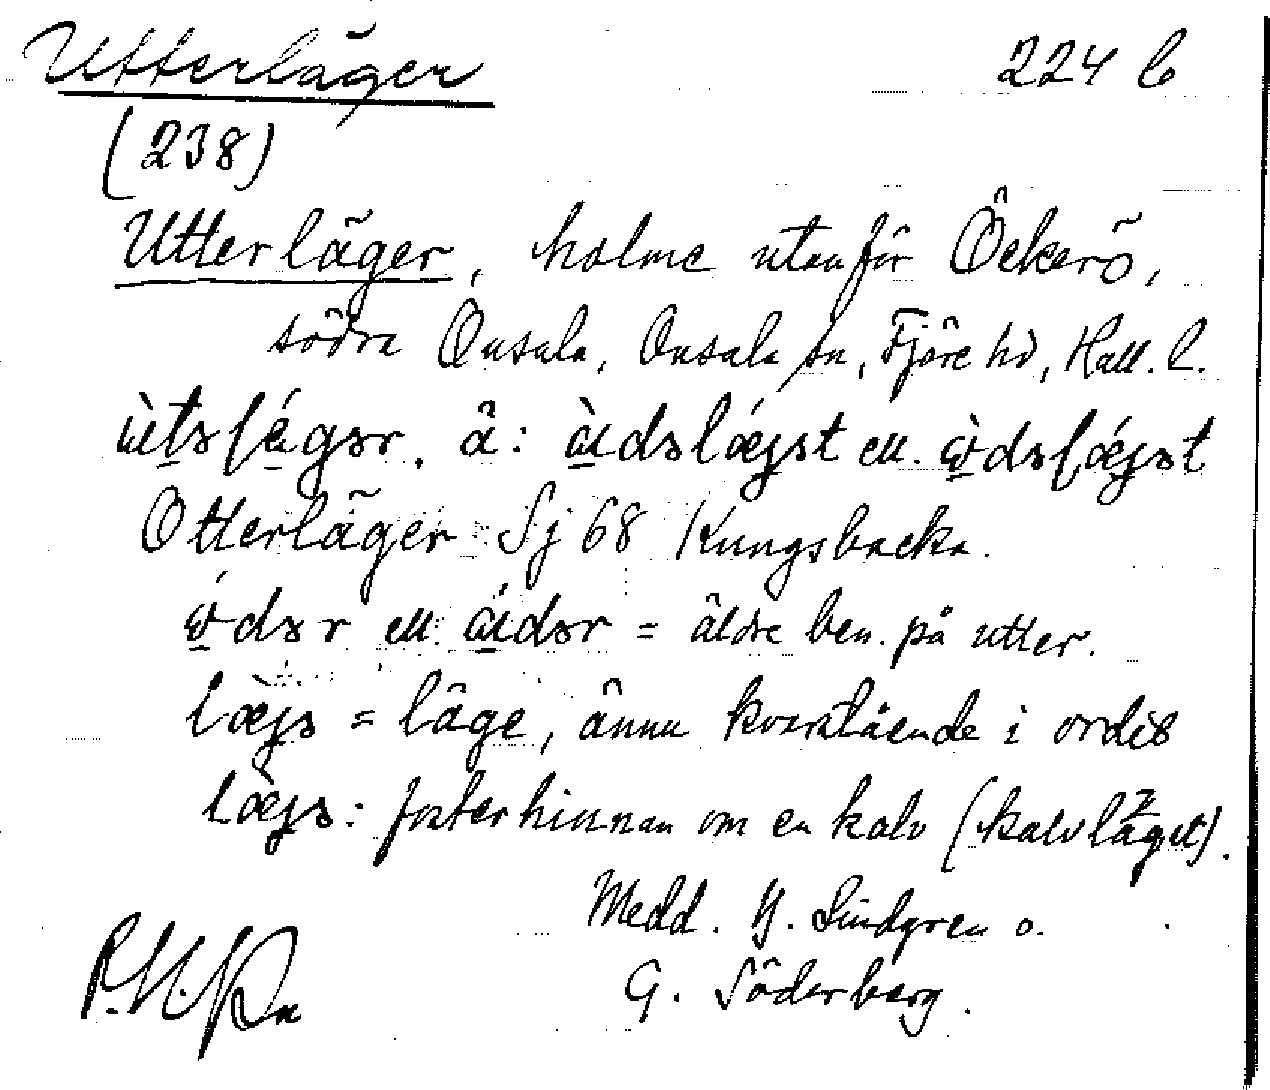 Utterläger 224 b
(238)
Utterläger, holme utanför Öckerö,
södra Onsala, Onsala sn, Fjäre hd, Hall. l.
ùtəlágər. ä: àdəlæjət ell. dəlæjət
Otterläger Sj 68 Kungsbacka.
dər ell. ádər = äldre ben. på utter.
læjə = läge, ännu kvarstående i ordet
læjə: fosterhinnan om en kalv (kalvläget).
Medd. Y. Lindgren o.
G. Söderberg.